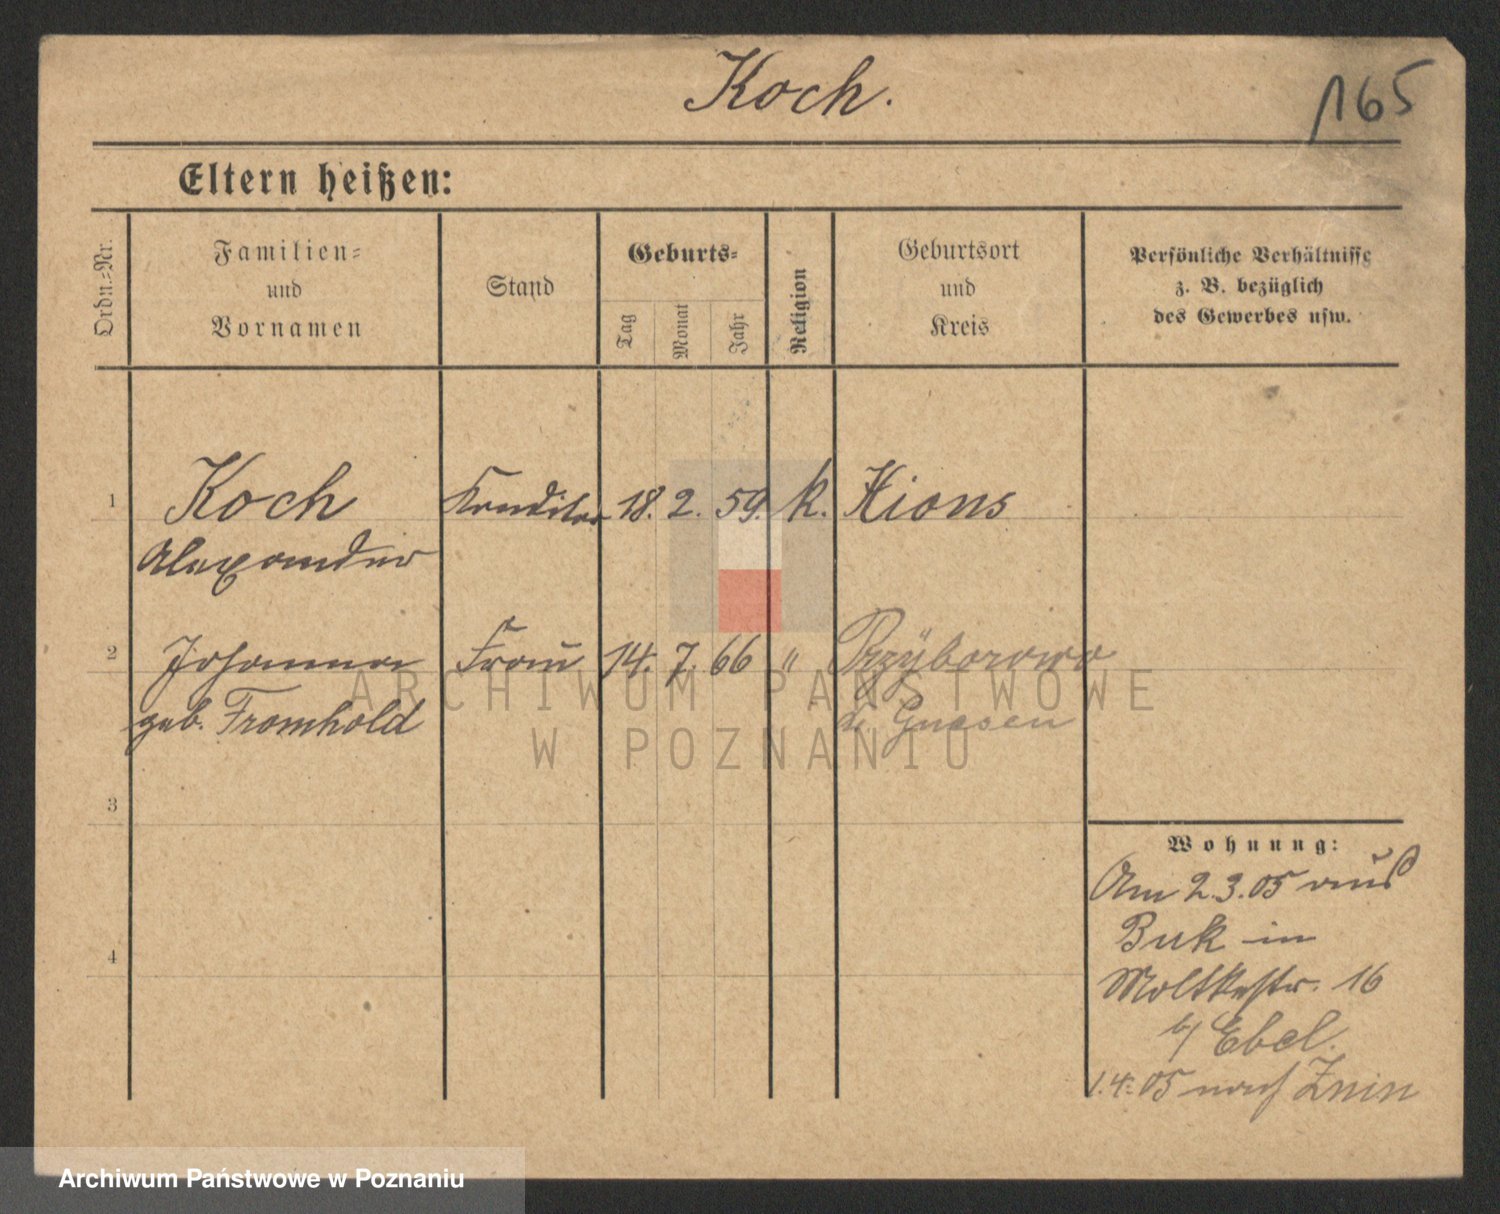 Koch.
165
Eltern heißen:
Ordn.=Nr.
Familien=
und
Vornamen
Stand
Geburts=
Tag
Monat
Jahr
Religion
Geburtsort
und
Kreis
Persönliche Verhältnisse
z. B. bezüglich
des Gewerbes usw.
1 Koch Konditor 18. 2. 59. k. Xions
Alexander
2 Johanna Frau 14. 7. 66 " Przyborowo
geb. Fromhold Gnesen
ARCHIWUM PAŃSTWOWE
W POZNANIU
3
4
Wohnung:
Am 2.3.05 aus
Buk in
Moltkestr. 16
b/ Ebel.
1.4.05 nach Znin
Archiwum Państwowe w Poznaniu